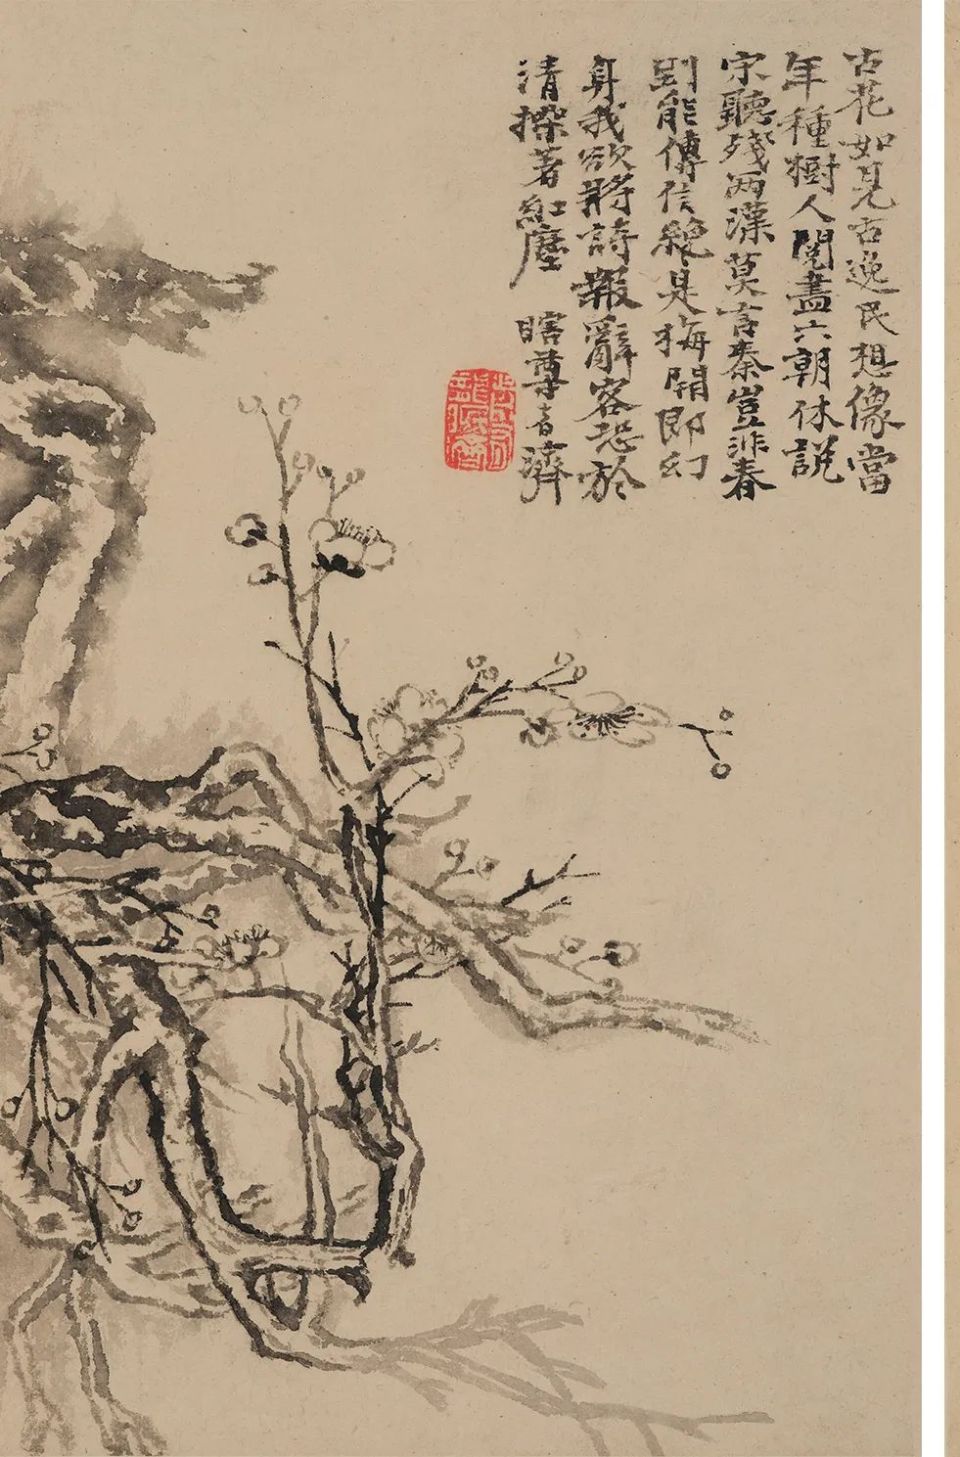 古花如見古逸民想像當
年種樹人閱盡六朝休說
宋聽殘兩漢莫言秦豈非春
到能傳信總是梅開即幻
身我欲將詩報辭客恐於
清操著紅塵 瞎尊者濟